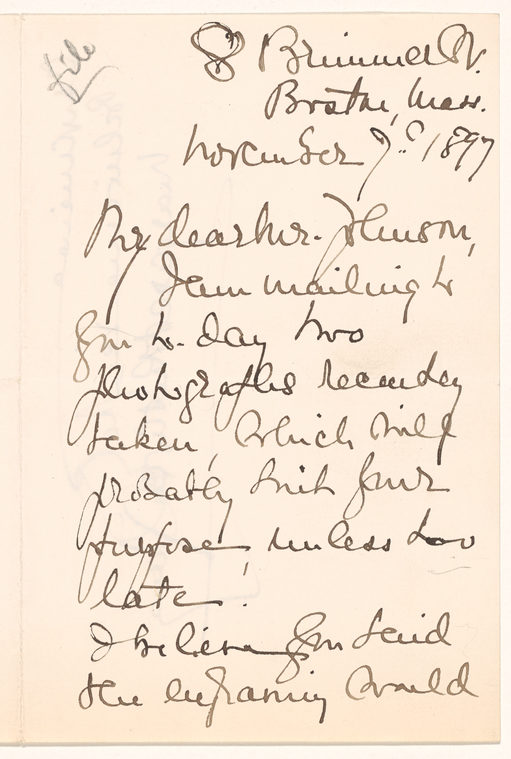 File
8 Brimmer St.
Boston, Mass.
November 7th 1897
My dear Mr. Johnson,
I am mailing to
you to-day two
photographs recently
taken, which will
probably suit your
purpose, unless too
late!
I believe you said
the engraving would